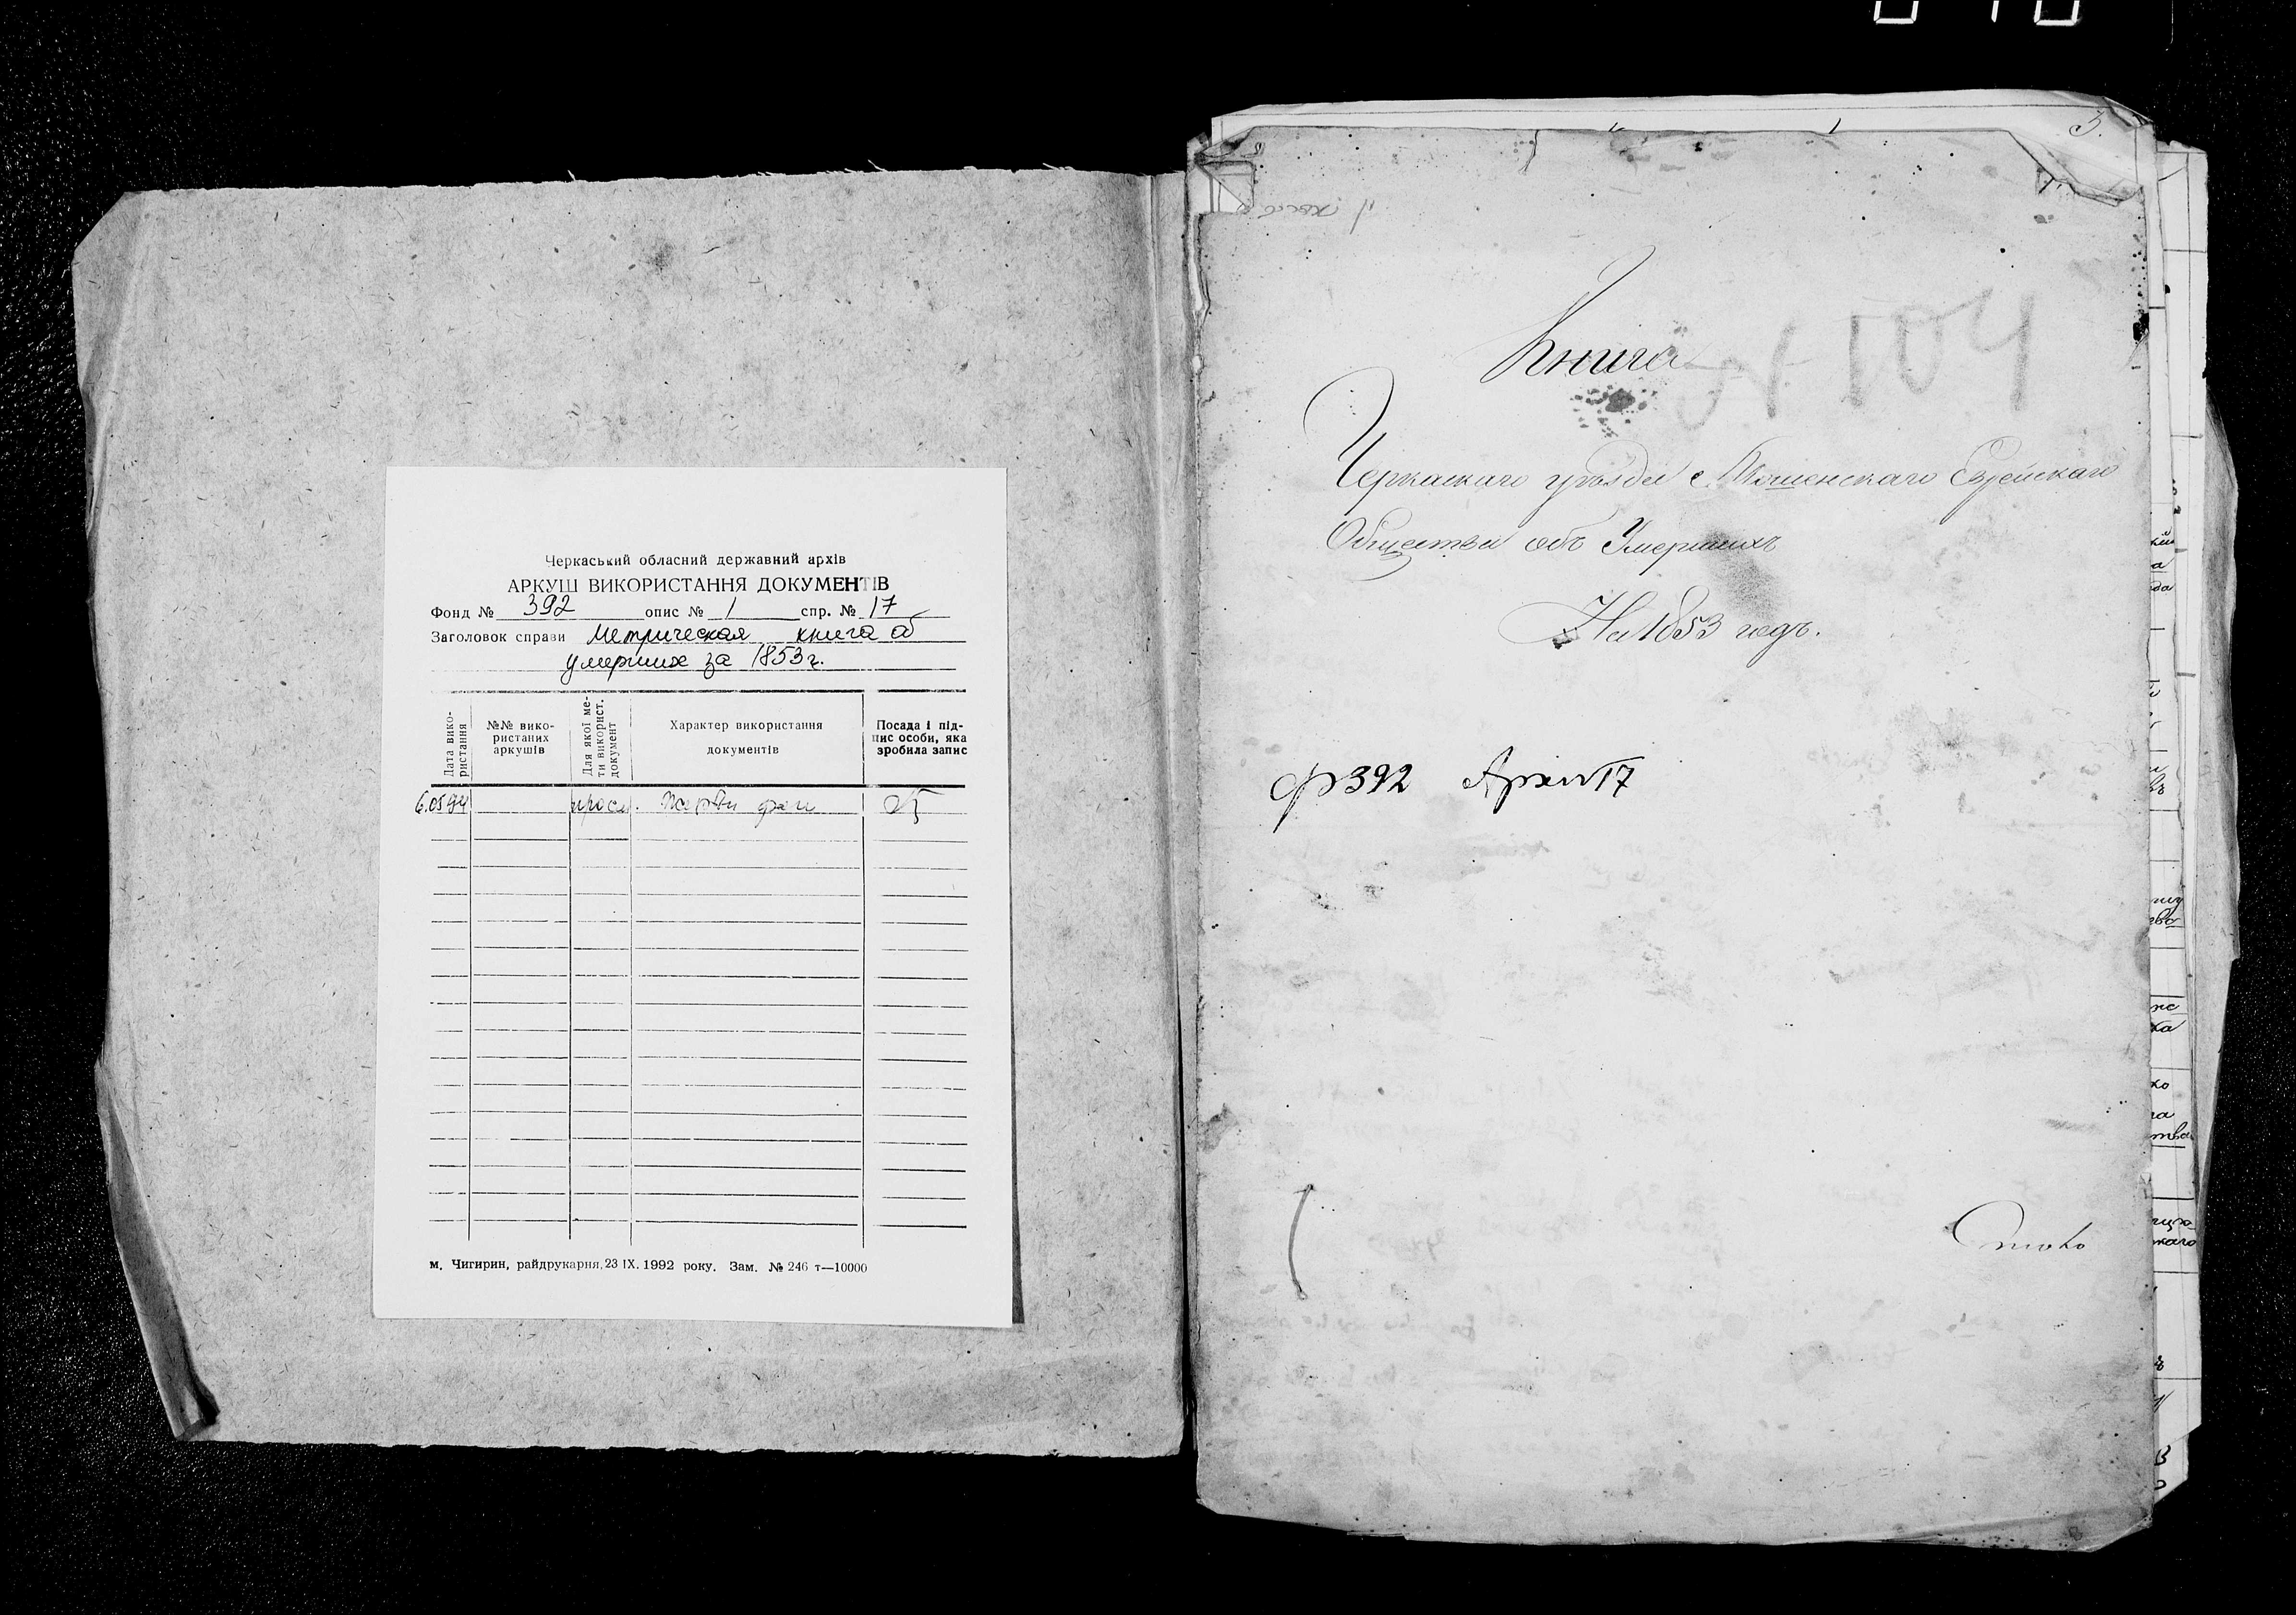 Черкаський обласний державний архів
АРКУШ ВИКОРИСТАННЯ ДОКУМЕНТІВ
Фонд № 392 опис № 1 спр. № 17
Заголовок справи Метрическая книга об
умерших за 1853 г.
Дата вико-
ристання
№№ вико-
ристаних
аркушів
Для якої ме-
ти використ.
документ
Характер використання
документів
Посада і під-
пис особи, яка
зробила запис
6.05.94
м. Чигирин, райдрукарня, 23 IX. 1992 року. Зам. № 246 т—10000
3.
Книга
№ 104
Черкаскаго уѣзда с. Мошенскаго Еврейскаго
Общества объ Умершихъ
На 1853 годъ.
ф 392 Арх № 17